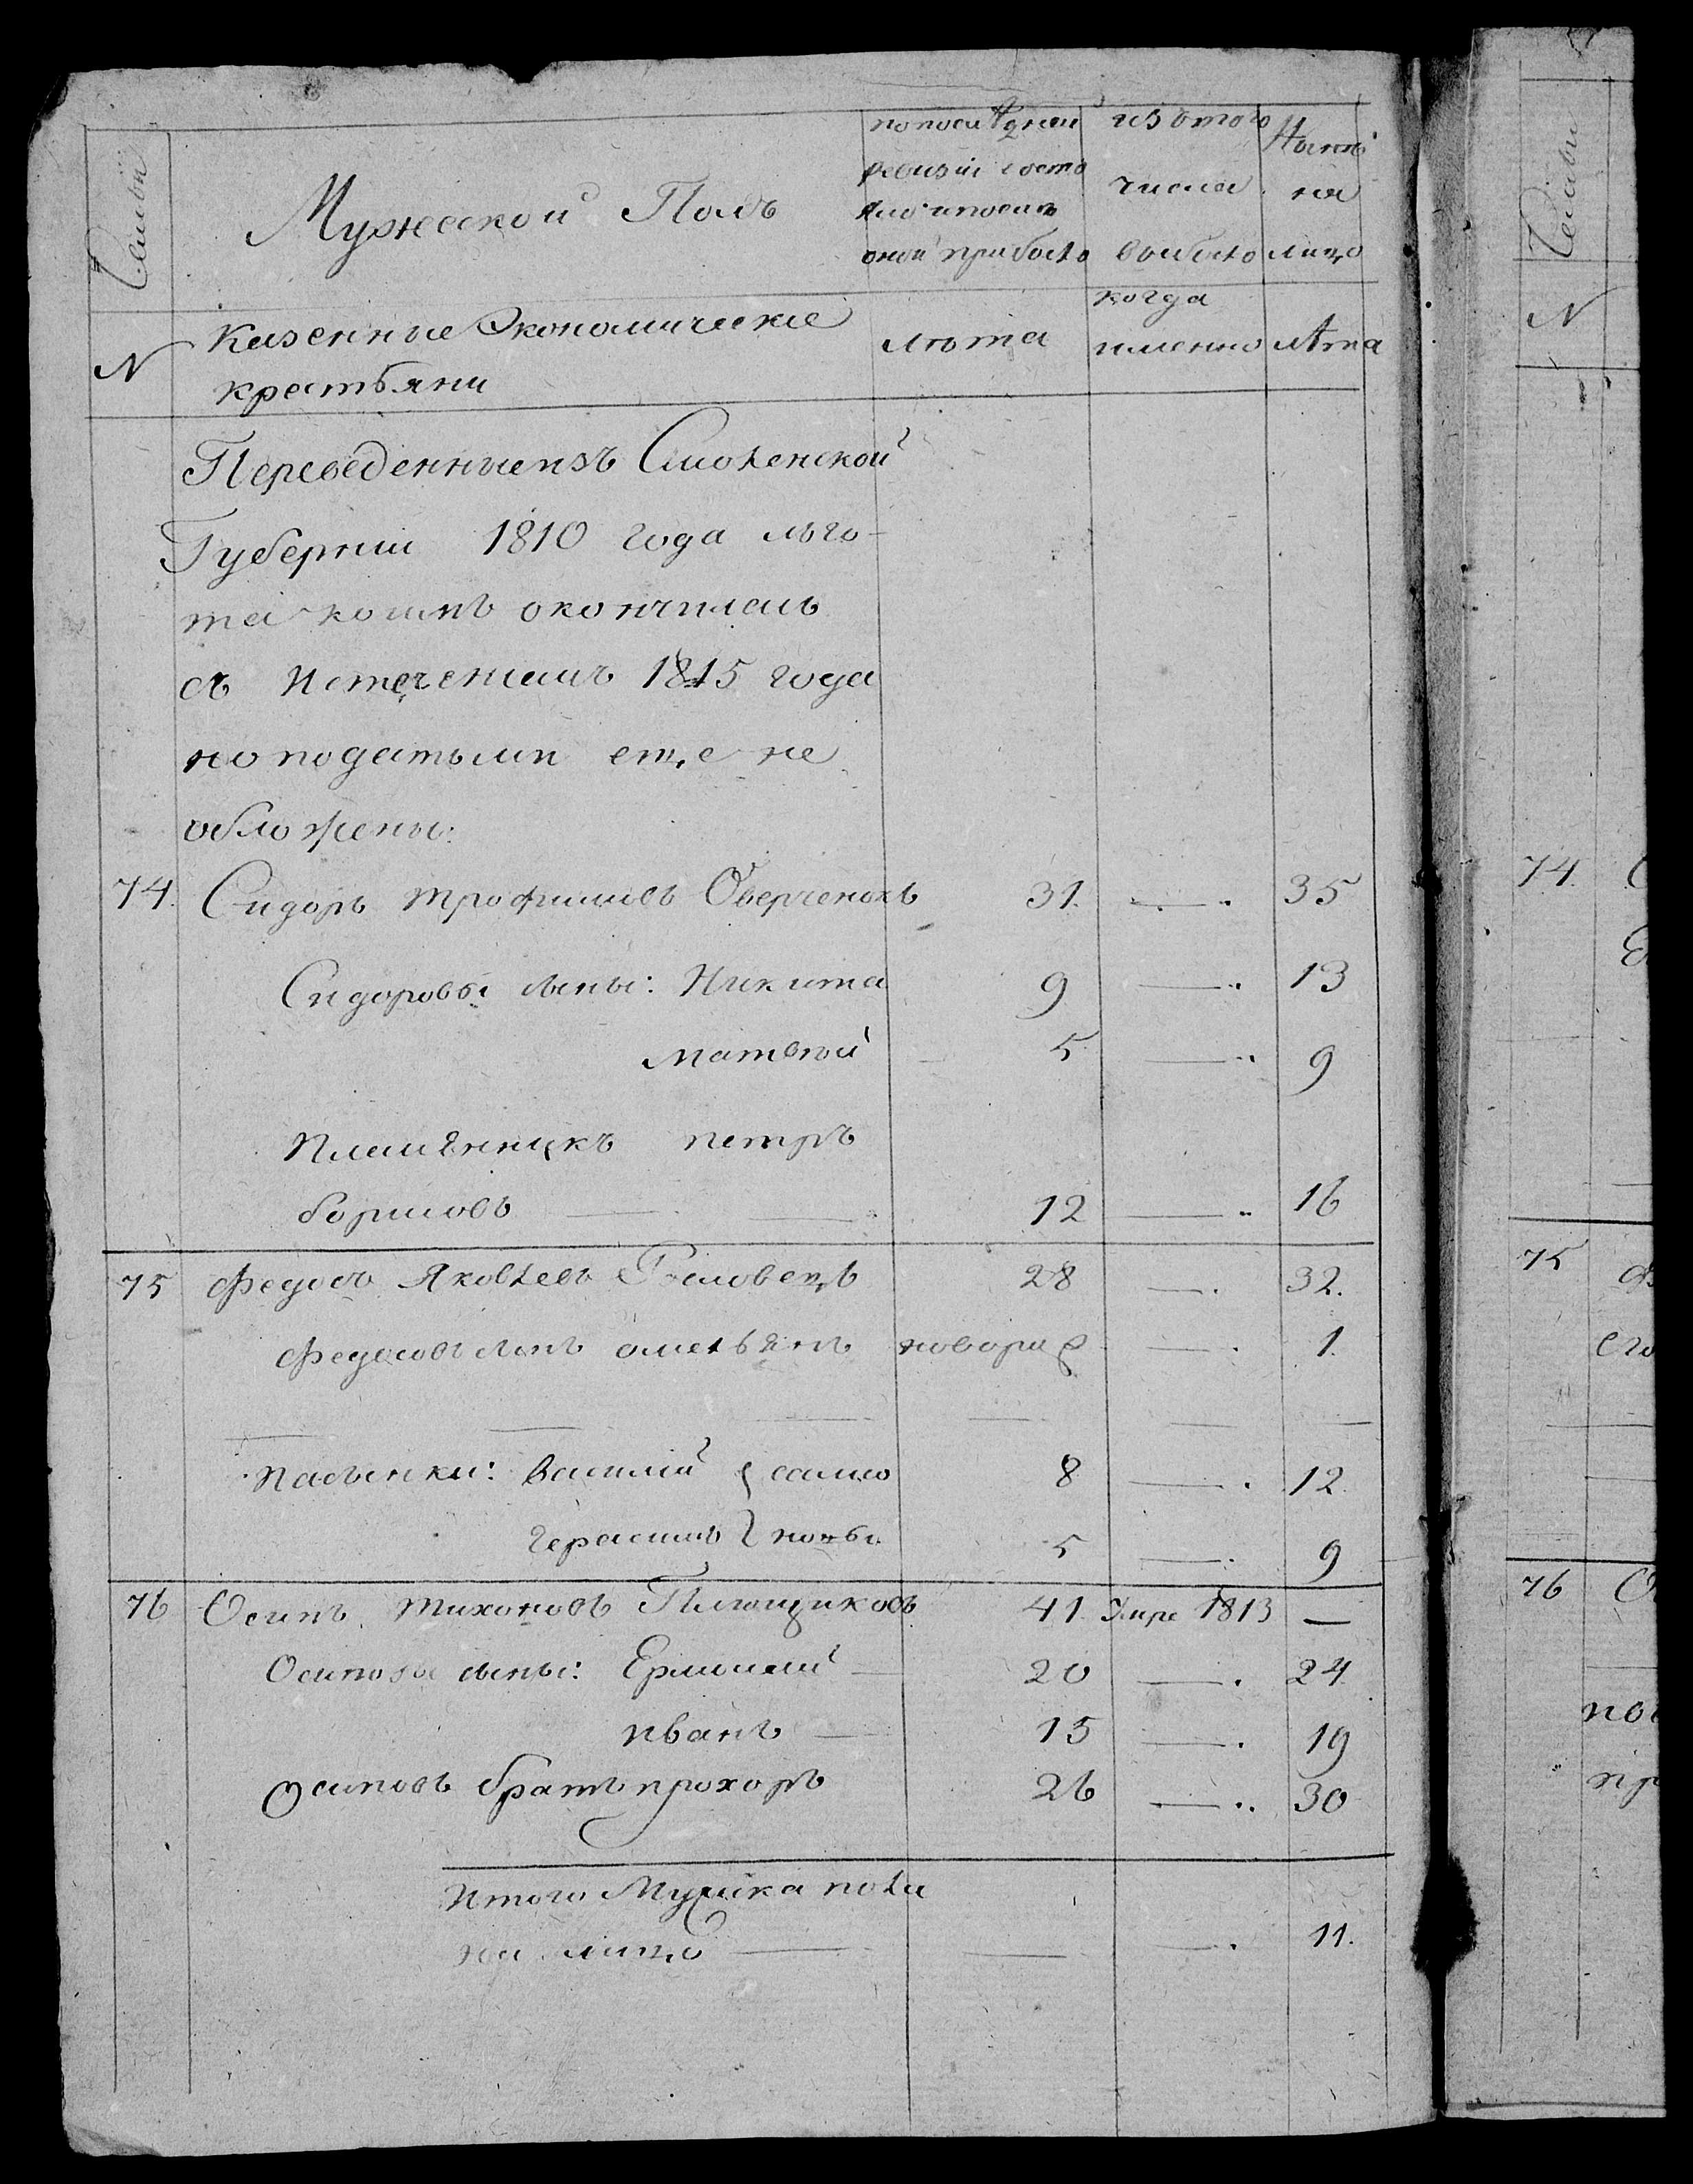 Семьи
Мужеской Полъ
по последней ревизіи состояло и после оной прибыло
изъ того числа выбыло
Ныне на лицо
N
Казенные Экономическіе
крестьяни
лета
когда именно
лета
Переведенные изъ Смоленской
Губерніи 1810 года льго-
та коимъ окончилась
съ истеченіемъ 1815 года
но податьми еще не
обложены:
74. Сидоръ трофимовъ Оверченокъ 31. 35
Сидоровы сыны: Никита 9 13
Матвей 5 9
Племянникъ петръ
борисовъ 12 16
75 Федосъ Яковлевъ Рословецъ 28 32.
Федосовъ сынъ омельянъ новорж 1.
Пасынки: Василій самсо 8 12.
герасимъ новы 5 9
76 Осипъ тихоновъ Пилющиковъ 41 Умре 1813 —
Осиповы сыны: Ермолай 20 24
иванъ 15 19
Осиповъ братъ прохоръ 26 30
Итого Мужска пола
на лицо 11.
Семьи
N
74.
75
его
76